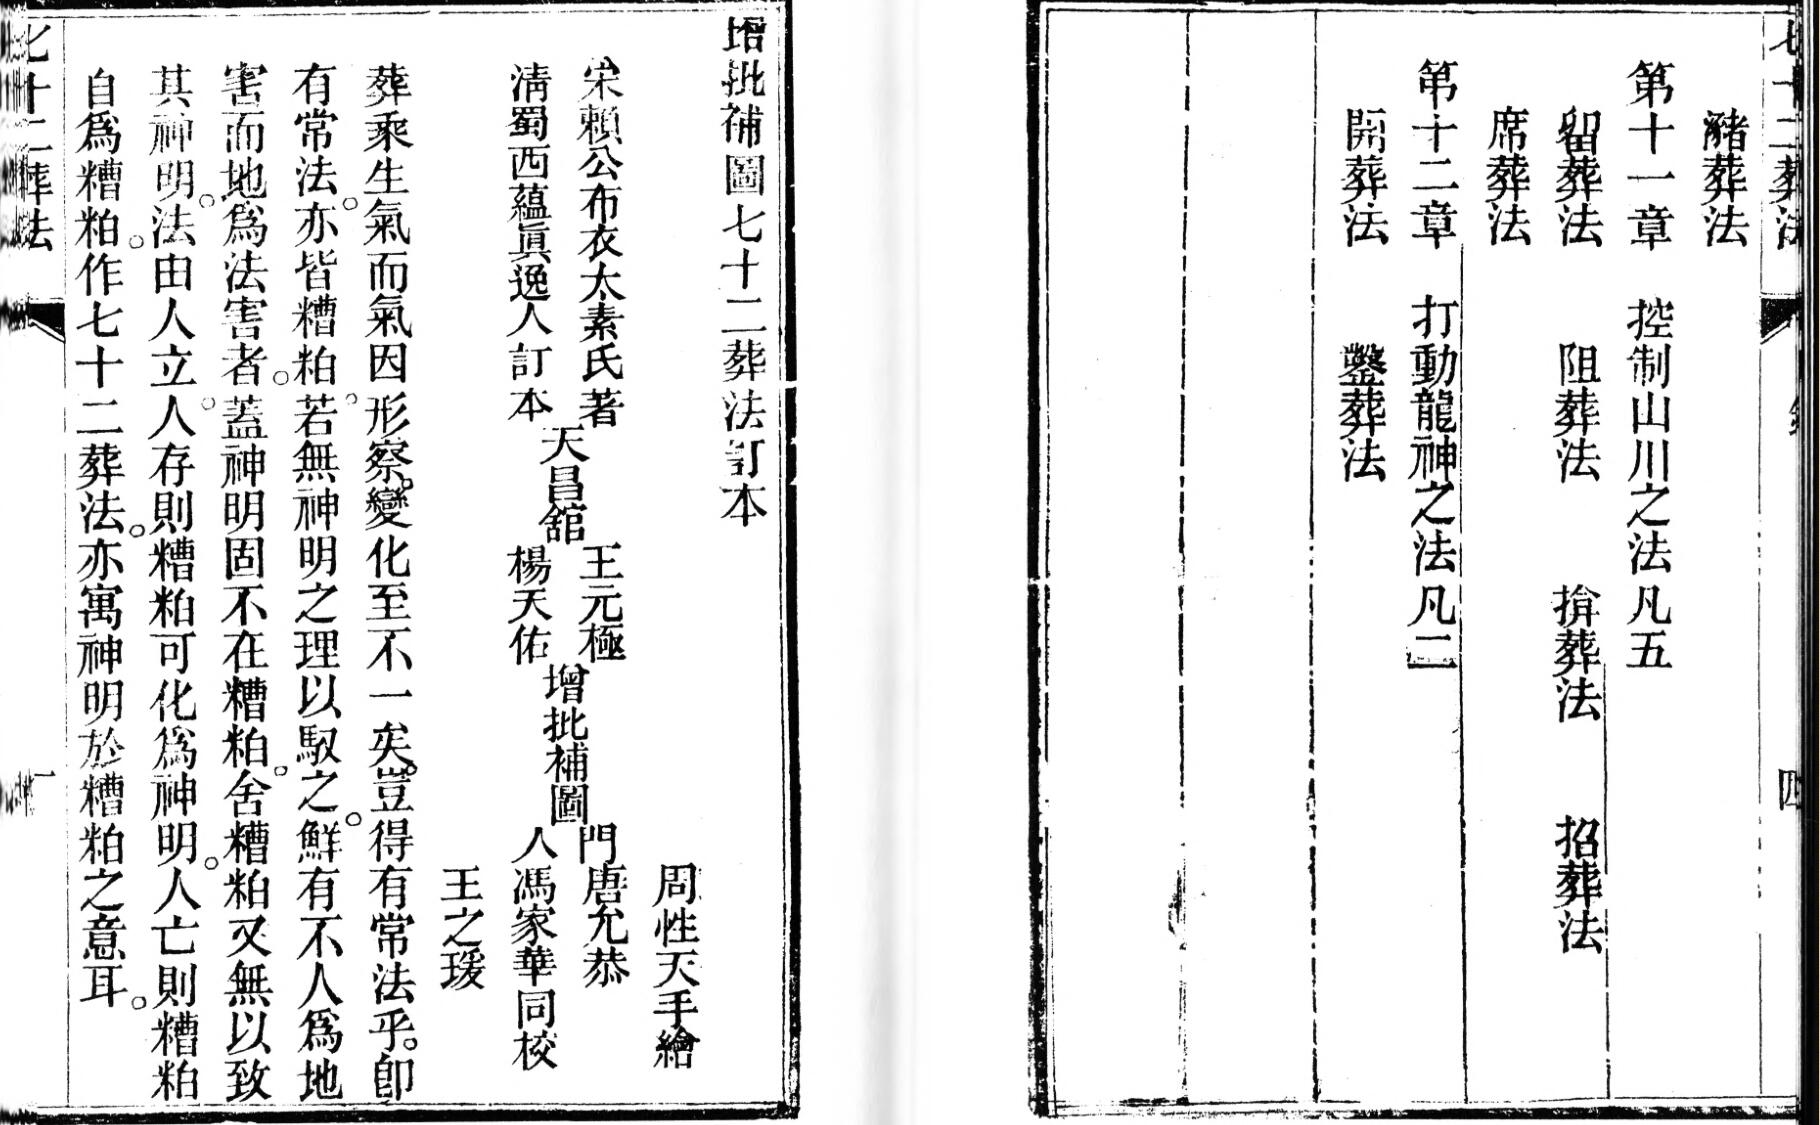 七十二葬法
四
瀦葬法
第十一章 控制山川之法凡五
留葬法 阻葬法 揜葬法 招葬法
席葬法
第十二章 打動龍神之法凡二
開葬法 鑿葬法
增批補圖七十二葬法訂本
周性天手繪
宋賴公布衣太素氏著 王元極 門唐允恭
天昌舘 增批補圖
清蜀西蘊眞逸人訂本 楊天佑 人馮家華同校
王之瑗
葬乘生氣而氣因形察。變化至不一矣。豈得有常法乎。卽
有常法。亦皆糟粕。若無神明之理以馭之。鮮有不人爲地
害而地爲法害者。蓋神明固不在糟粕。舍糟粕又無以致
其神明。法由人立。人存則糟粕可化爲神明。人亡則糟粕
自爲糟粕。作七十二葬法。亦寓神明於糟粕之意耳。
七十二葬法
一